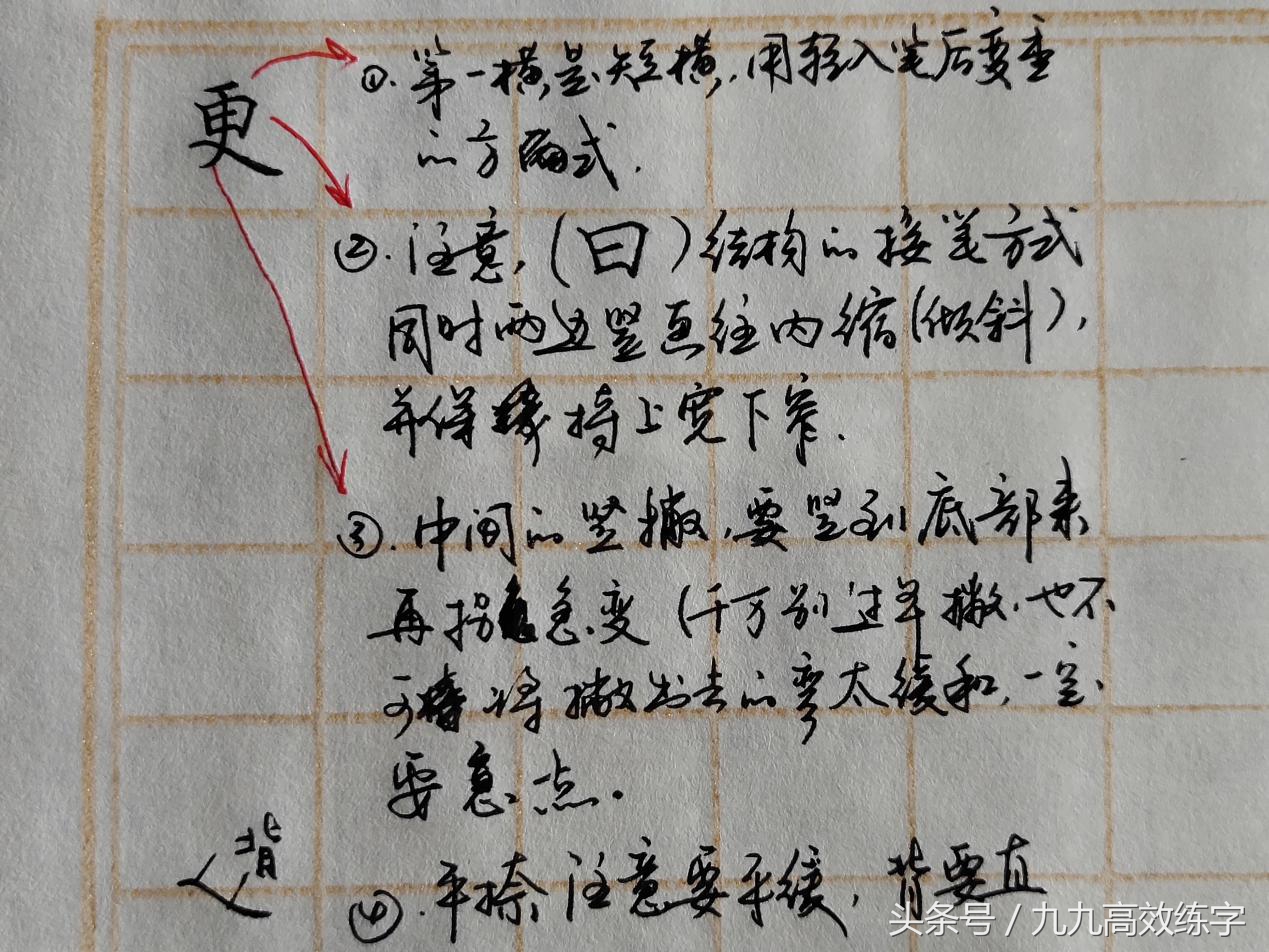 更
①.第一横是短横,用轻入笔后变重
的方式.
②.注意,(曰)结构的接笔方式
同时两边竖画往内缩(倾斜),
并保持上宽下窄.
③.中间的竖撇,要竖到底部来
再拐急变(千万别过早撇,也不
可将撇出去的弯太缓和,一定
要急点.
背
④.平捺注意要平缓,背要直
头条号/九九高效练字